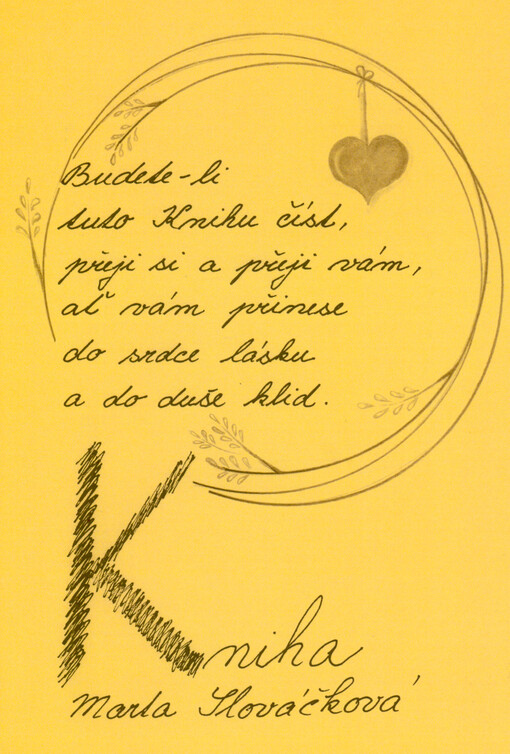 Budete-li
tuto Knihu číst,
přeji si a přeji vám,
ať vám přinese
do srdce lásku
a do duše klid.
Kniha
Marta Slováčková